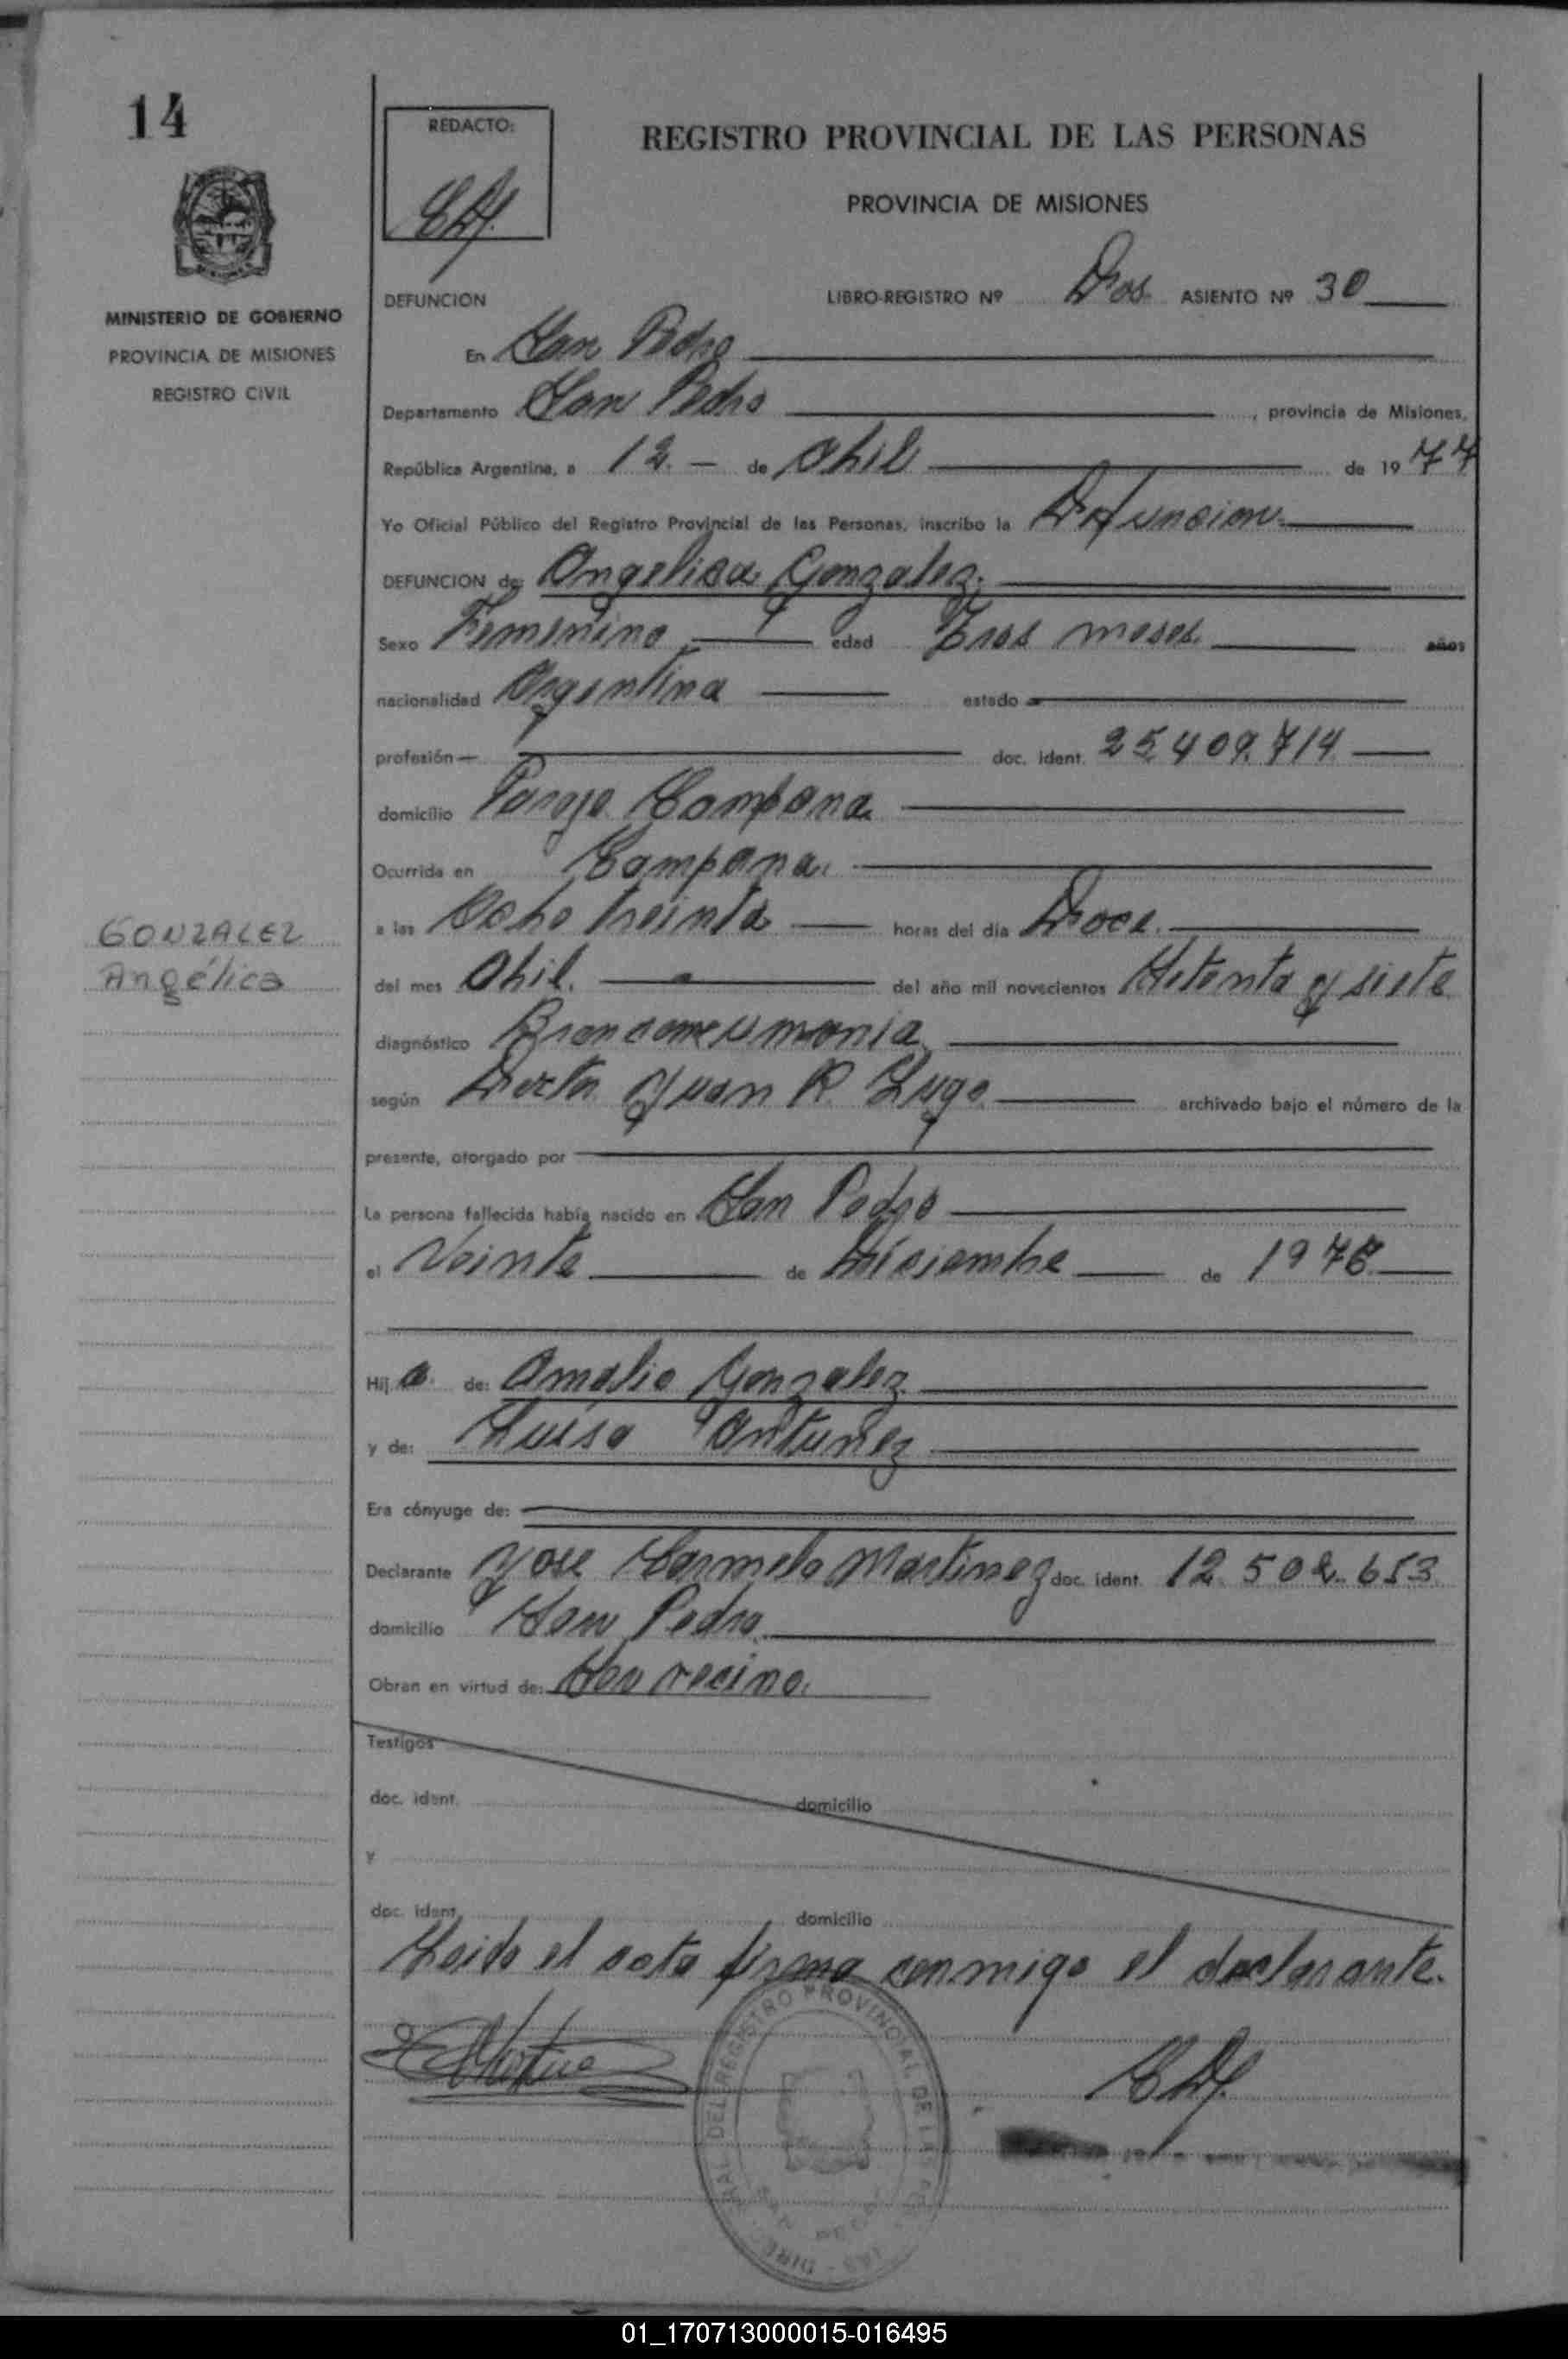 14
REDACTO:
REGISTRO PROVINCIAL DE LAS PERSONAS
PROVINCIA DE MISIONES
MINISTERIO DE GOBIERNO
PROVINCIA DE MISIONES
REGISTRO CIVIL
DEFUNCION LIBRO-REGISTRO Nº Dos. ASIENTO Nº 30
En San Pedro
Departamento San Pedro , provincia de Misiones,
República Argentina, a 12.- de Abril de 1977
Yo Oficial Público del Registro Provincial de las Personas, inscribo la Defuncion.
DEFUNCION de: Angelica Gonzalez.
Sexo Femenino edad Tres meses. años
nacionalidad Argentina estado
profesión doc. ident. 25.409.714.
domicilio Paraje Campana
Ocurrida en Campana.
a las Ocho treinta horas del día Doce.
GONZALEZ
Angélica
del mes Abril. del año mil novecientos Setenta y siete
diagnóstico Bronconeumonia
según Docto. Juan R. Lugo archivado bajo el número de la
presente, otorgado por
La persona fallecida había nacido en San Pedro
el Veinte de Diciembre de 1976
Hij a. de: Amalio Gonzalez
y de: Luisa Antunez
Era cónyuge de:
Declarante Jose Carmelo Martinez doc. ident. 12.502.653
domicilio San Pedro
Obran en virtud de: Ser vecino.
Testigos
doc. ident. domicilio
y
doc. ident. domicilio
Leida el acta firma conmigo el declarante.
REGISTRO PROVINCIAL DE LAS
01_170713000015-016495